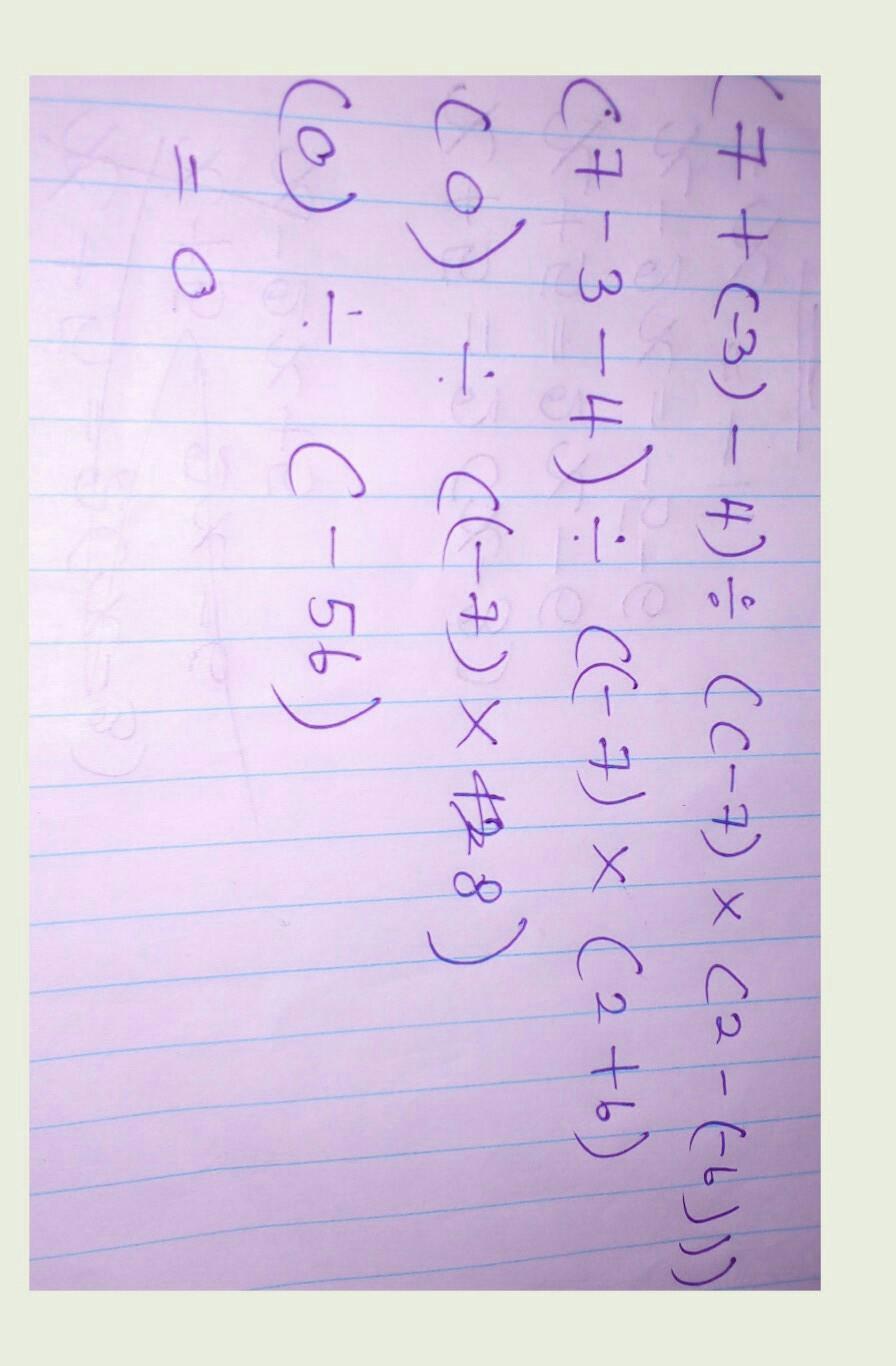 (7 + (-3) - 4) ÷ ((-7) × (2 - (-6)))
(7 - 3 - 4) ÷ ((-7) × (2 + 6)
(0) ÷ ((-7) × 8)
(0) ÷ (-56)
= 0